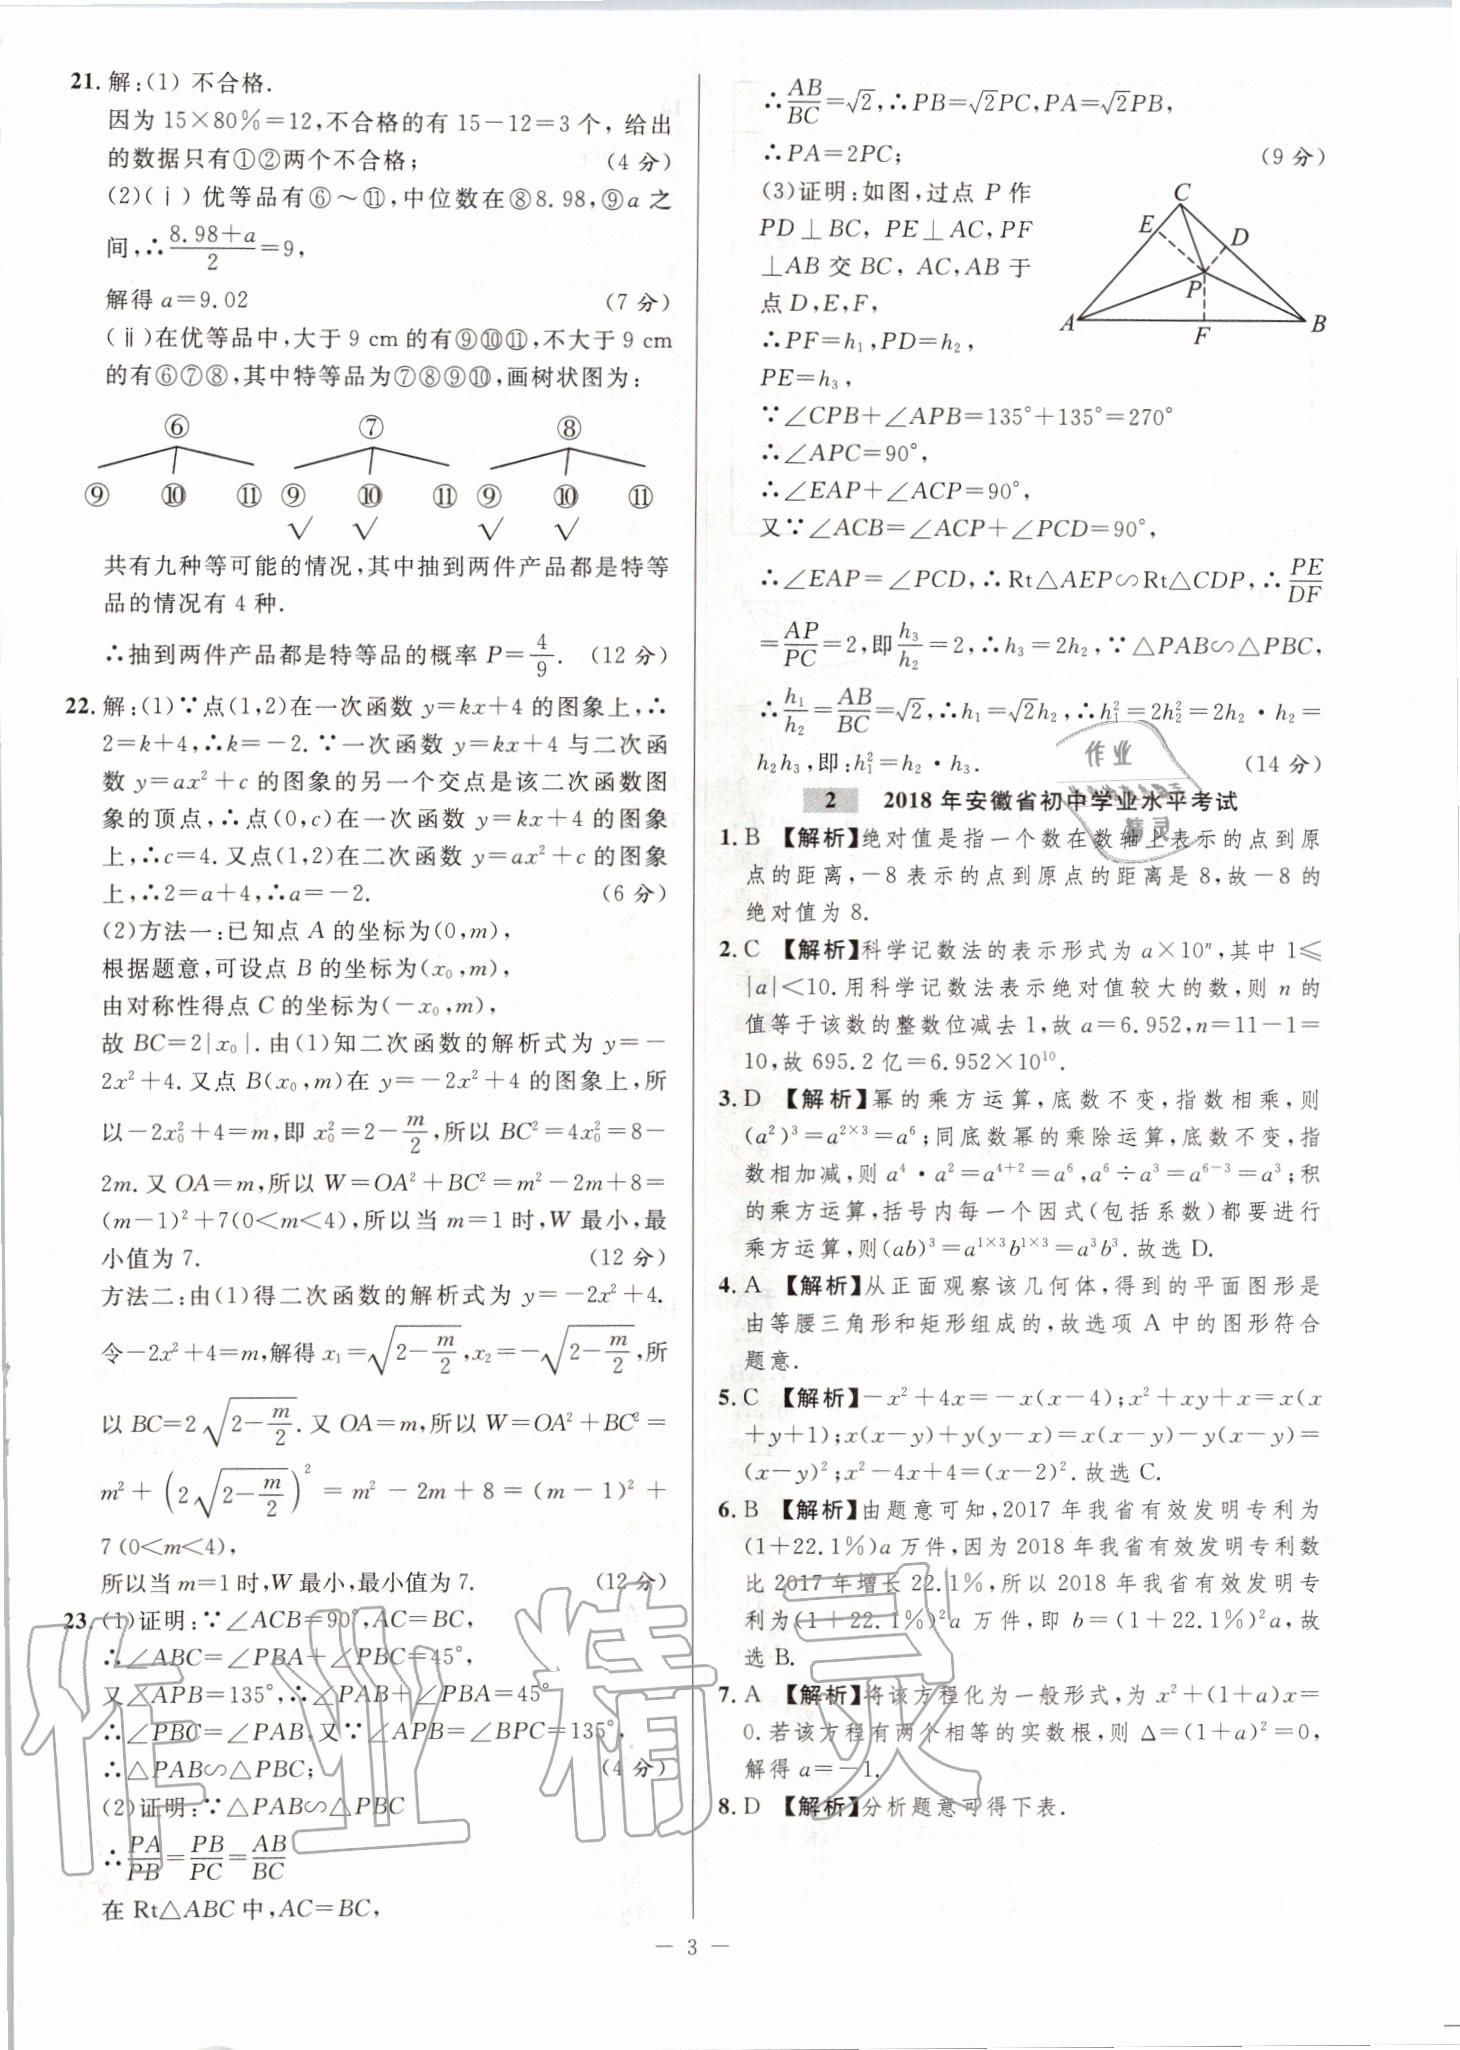 21. 解:(1) 不合格.
因为15×80%=12,不合格的有15-12=3个, 给出
的数据只有①②两个不合格; (4分)
(2)(ⅰ) 优等品有⑥~⑪,中位数在⑧8.98,⑨a之
间,∴(8.98+a)/2=9,
解得a=9.02 (7分)
(ⅱ)在优等品中,大于9 cm的有⑨⑩⑪,不大于9 cm
的有⑥⑦⑧,其中特等品为⑦⑧⑨⑩,画树状图为:
⑥ ⑦ ⑧
⑨ ⑩ ⑪ ⑨ ⑩ ⑪ ⑨ ⑩ ⑪
√ √ √ √
共有九种等可能的情况,其中抽到两件产品都是特等
品的情况有4种.
∴抽到两件产品都是特等品的概率P=4/9. (12分)
22. 解:(1)∵点(1,2)在一次函数y=kx+4的图象上,∴
2=k+4,∴k=-2.∵一次函数y=kx+4与二次函
数y=ax²+c的图象的另一个交点是该二次函数图
象的顶点,∴点(0,c)在一次函数y=kx+4的图象
上,∴c=4.又点(1,2)在二次函数y=ax²+c的图象
上,∴2=a+4,∴a=-2. (6分)
(2)方法一:已知点A的坐标为(0,m),
根据题意,可设点B的坐标为(x₀,m),
由对称性得点C的坐标为(-x₀,m),
故BC=2|x₀|.由(1)知二次函数的解析式为y=-
2x²+4.又点B(x₀,m)在y=-2x²+4的图象上,所
以-2x₀²+4=m,即x₀²=2-m/2,所以BC²=4x₀²=8-
2m.又OA=m,所以W=OA²+BC²=m²-2m+8=
(m-1)²+7(0<m<4),所以当m=1时,W最小,最
小值为7. (12分)
方法二:由(1)得二次函数的解析式为y=-2x²+4.
令-2x²+4=m,解得x₁=√(2-m/2),x₂=-√(2-m/2),所
以BC=2√(2-m/2).又OA=m,所以W=OA²+BC²=
m²+(2√(2-m/2))²=m²-2m+8=(m-1)²+
7(0<m<4),
所以当m=1时,W最小,最小值为7. (12分)
23. (1)证明:∵∠ACB=90°,AC=BC,
∴∠ABC=∠PBA+∠PBC=45°,
又∠APB=135°,∴∠PAB+∠PBA=45°
∴∠PBC=∠PAB,又∵∠APB=∠BPC=135°,
∴△PAB∽△PBC; (4分)
(2)证明:∵△PAB∽△PBC
∴PA/PB=PB/PC=AB/BC
在Rt△ABC中,AC=BC,
∴AB/BC=√2,∴PB=√2PC,PA=√2PB,
∴PA=2PC; (9分)
(3)证明:如图,过点P作
PD⊥BC, PE⊥AC,PF
⊥AB交BC, AC,AB于
点D,E,F,
∴PF=h₁,PD=h₂,
PE=h₃,
C
E
D
P
A
F
B
∵∠CPB+∠APB=135°+135°=270°
∴∠APC=90°,
∴∠EAP+∠ACP=90°,
又∵∠ACB=∠ACP+∠PCD=90°,
∴∠EAP=∠PCD,∴Rt△AEP∽Rt△CDP,∴PE/DF
=AP/PC=2,即h₃/h₂=2,∴h₃=2h₂,∵△PAB∽△PBC,
∴h₁/h₂=AB/BC=√2,∴h₁=√2h₂,∴h₁²=2h₂²=2h₂·h₂=
h₂h₃,即:h₁²=h₂·h₃. (14分)
2 2018年安徽省初中学业水平考试
1. B 【解析】绝对值是指一个数在数轴上表示的点到原
点的距离,-8表示的点到原点的距离是8,故-8的
绝对值为8.
2. C 【解析】科学记数法的表示形式为a×10ⁿ,其中1≤
|a|<10.用科学记数法表示绝对值较大的数,则n的
值等于该数的整数位减去1,故a=6.952,n=11-1=
10,故695.2亿=6.952×10¹⁰.
3. D 【解析】幂的乘方运算,底数不变,指数相乘,则
(a²)³=a²ˣ³=a⁶;同底数幂的乘除运算,底数不变,指
数相加减,则a⁴·a²=a⁴⁺²=a⁶,a⁶÷a³=a⁶⁻³=a³;积
的乘方运算,括号内每一个因式(包括系数)都要进行
乘方运算,则(ab)³=a¹ˣ³b¹ˣ³=a³b³.故选D.
4. A 【解析】从正面观察该几何体,得到的平面图形是
由等腰三角形和矩形组成的,故选项A中的图形符合
题意.
5. C 【解析】-x²+4x=-x(x-4);x²+xy+x=x(x
+y+1);x(x-y)+y(y-x)=x(x-y)-y(x-y)=
(x-y)²;x²-4x+4=(x-2)².故选C.
6. B 【解析】由题意可知,2017年我省有效发明专利为
(1+22.1%)a万件,因为2018年我省有效发明专利数
比2017年增长22.1%,所以2018年我省有效发明专
利为(1+22.1%)²a万件,即b=(1+22.1%)²a,故
选B.
7. A 【解析】将该方程化为一般形式,为x²+(1+a)x=
0.若该方程有两个相等的实数根,则Δ=(1+a)²=0,
解得a=-1.
8. D 【解析】分析题意可得下表.
— 3 —
作业
精灵
作业精灵